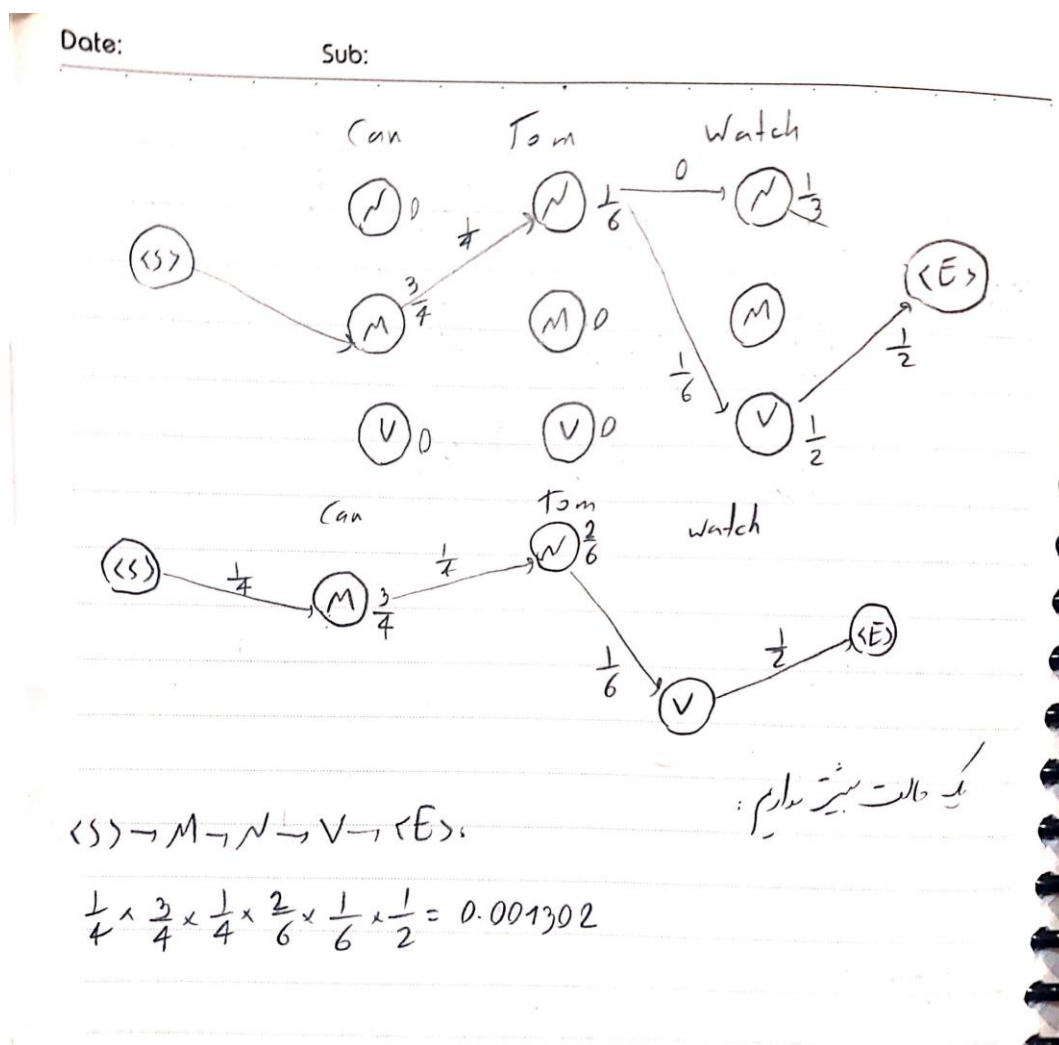 Date: Sub:
Can Tom Watch
N 0 N 1/6 0 N 1/3
1/4
<S>
<E>
M 3/4 M 0 M
1/2
1/6
V 0 V 0 V 1/2
Can Tom watch
<S> 1/4 M 3/4 1/4 N 2/6
1/6 V 1/2 <E>
یک حالت بیشتر نداریم:
<S> → M → N → V → <E>:
1/4 × 3/4 × 1/4 × 2/6 × 1/6 × 1/2 = 0.001302